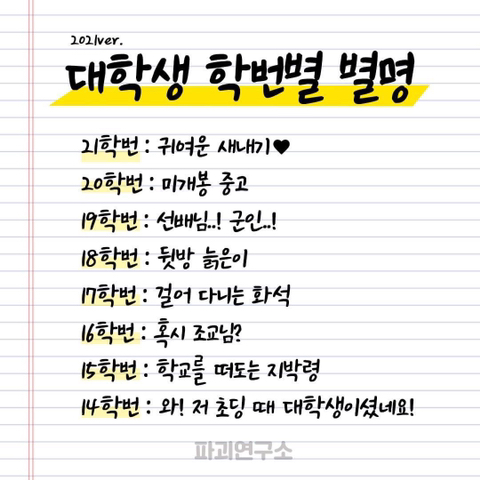 2021ver.
대학생 학번별 별명
21학번 : 귀여운 새내기♥
20학번 : 미개봉 중고
19학번 : 선배님..! 군인..!
18학번 : 뒷방 늙은이
17학번 : 걸어 다니는 화석
16학번 : 혹시 조교님?
15학번 : 학교를 떠도는 지박령
14학번 : 와! 저 초딩 때 대학생이셨네요!
파괴연구소